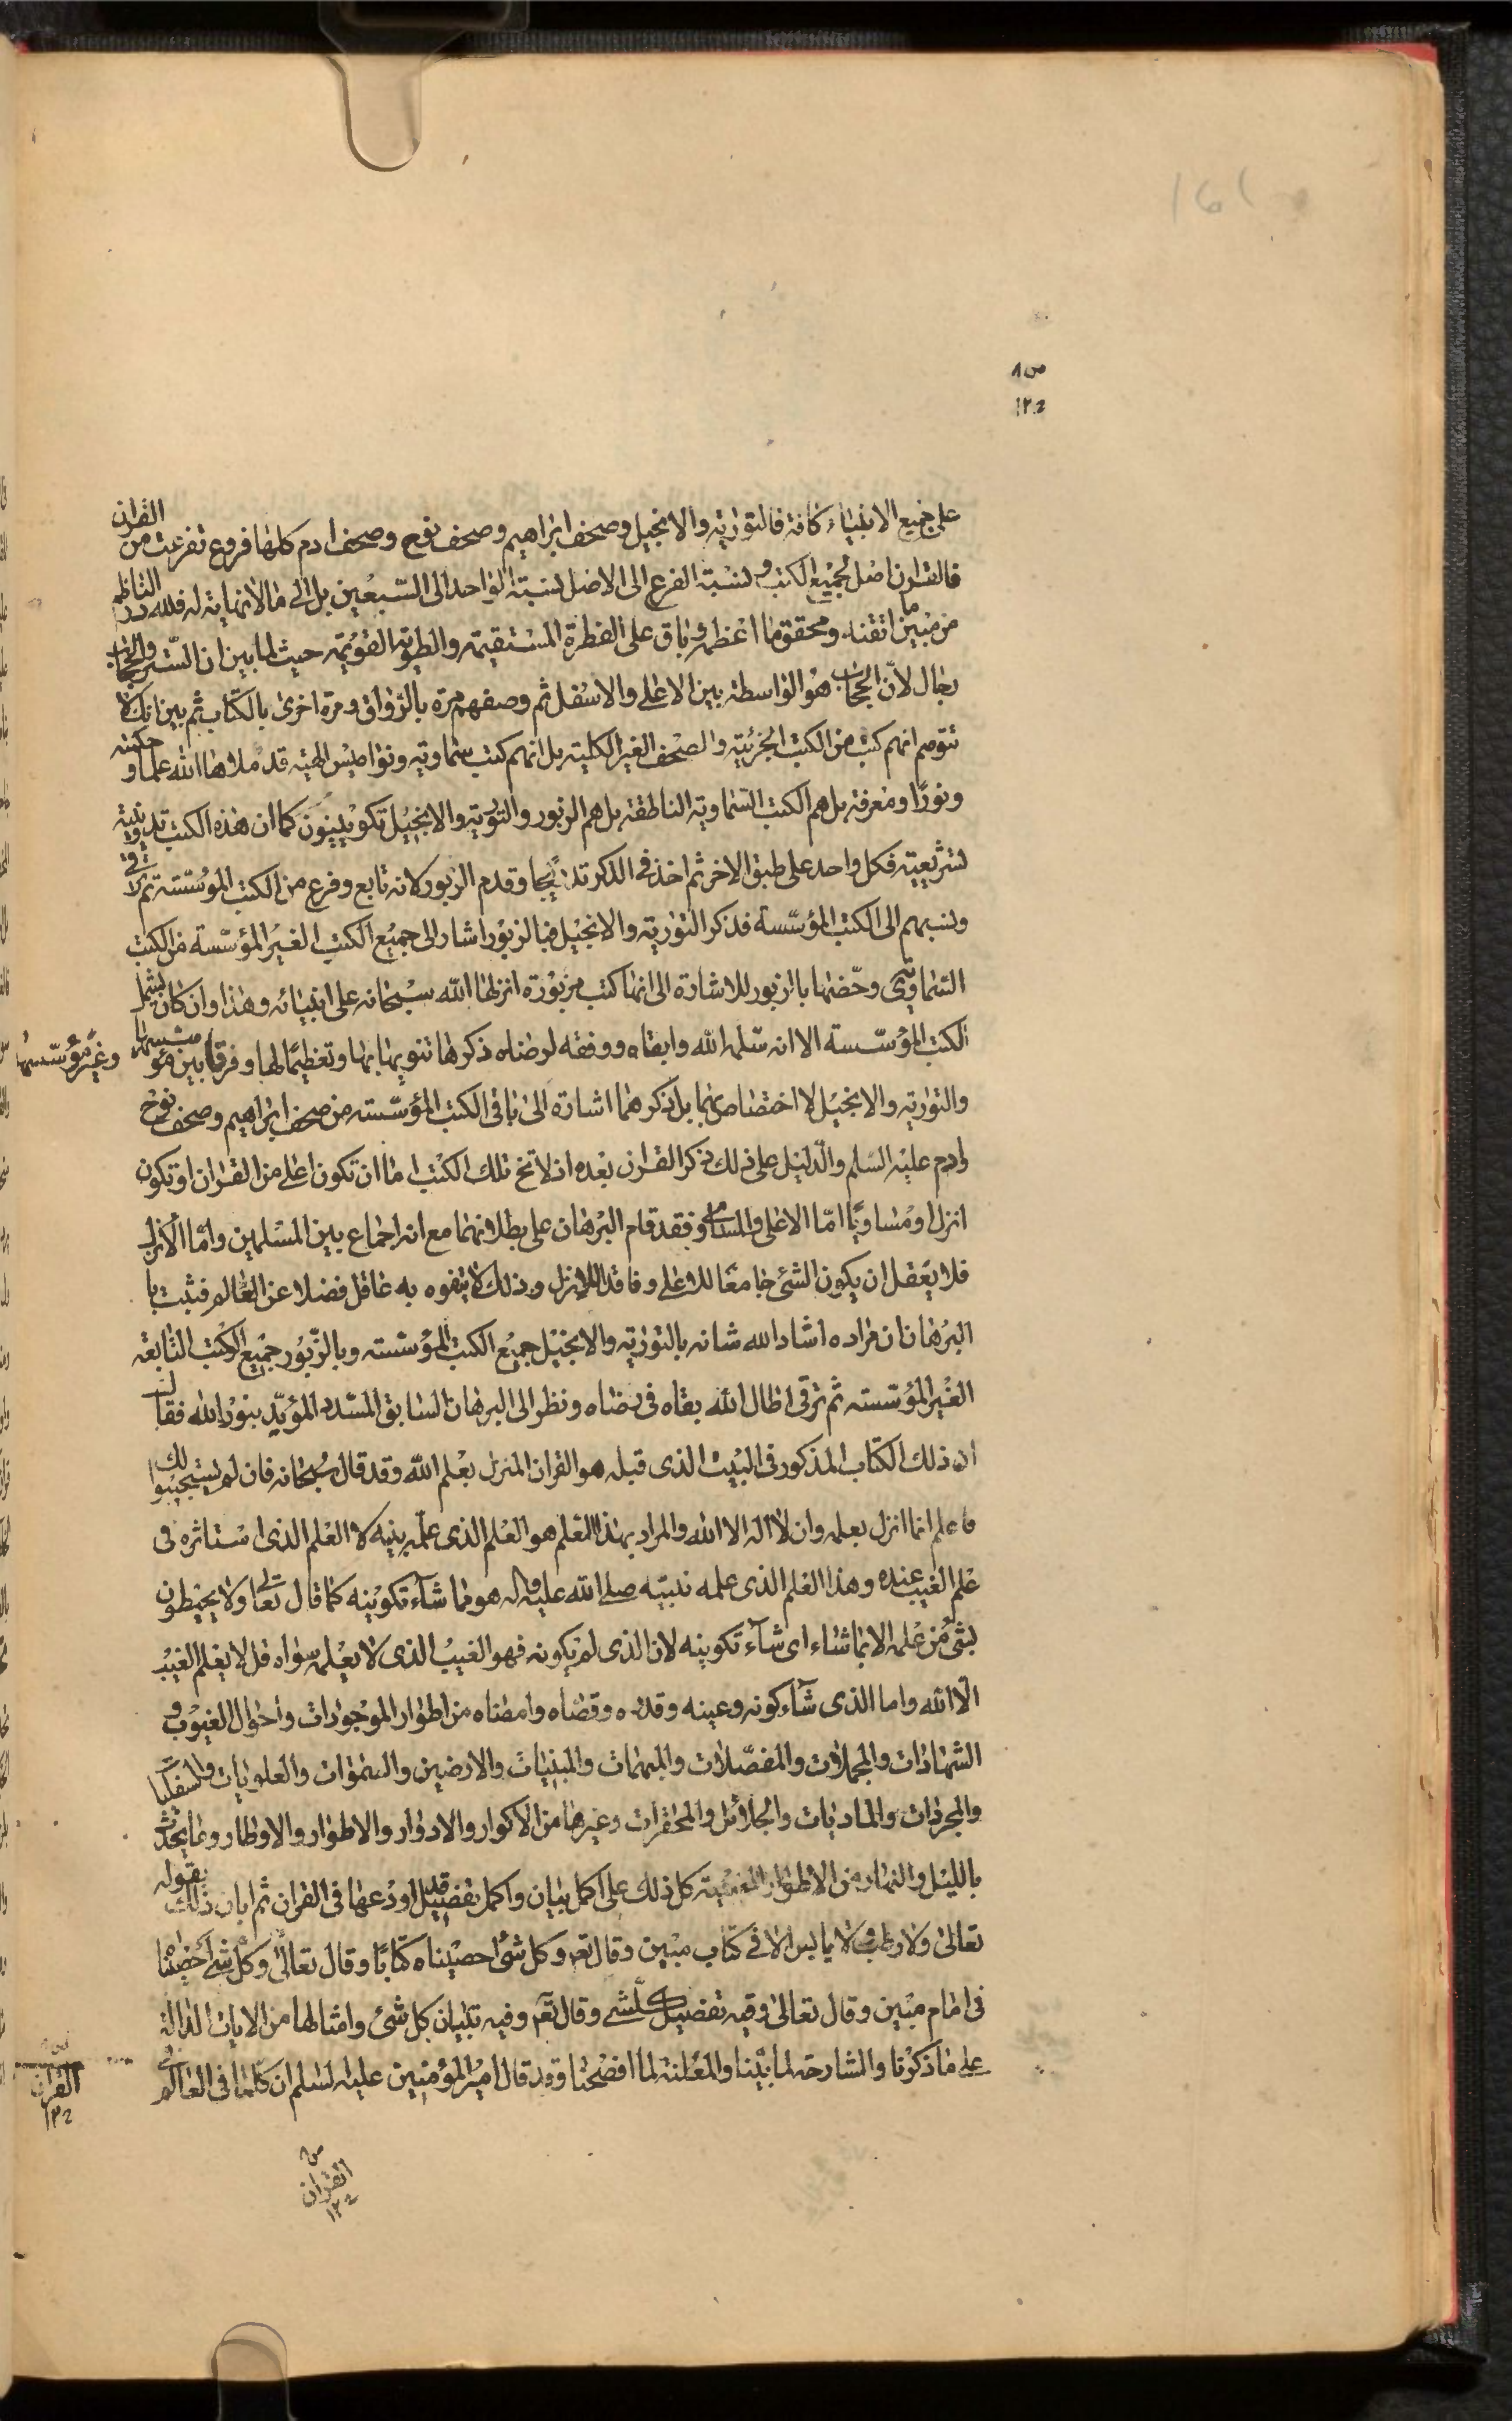 161
ص ٨
١٢ـ
على جميع الانبياء كافة فالتورية والانجيل وصحف ابراهيم وصحف نوح وصحف ادم كلها فروع تفرعت من القران
فالقران اصل لجميع الكتب ونسبة الفرع الى الاصل نسبة الواحد الى السبعين بل الى ما لا نهاية له فلله در الناظم
من مبين ما اتقنه ومحقق ما اعظمه وباق على الفطرة المستقيمة والطوية القويمة حيث لما بين ان الستر والحجاب
بحال لان الحجاب هو الواسطة بين الاعلى والاسفل ثم وصفهم مرة بالرواق ومرة اخرى بالكتاب ثم بين انك لا
تتوهم انهم كتب من الكتب الجزئية والصحف الغير الكلية بل انهم كتب سماوية ونواميس الهية قد ملاها الله علما و حكمة
ونورا ومعرفة بل هم الكتب السماوية الناطقة بل هم الزبور والتورية والانجيل تكوينيون كما ان هذه الكتب تدوينية
تشريعية فكل واحد على طبق الاخر ثم اخذ في الذكر تدريجا وقدم الزبور لانه تابع وفرع من الكتب المؤسسة ثم ترقى
ونسبهم الى الكتب المؤسسة فذكر التورية والانجيل فبالزبور اشار الى جميع الكتب الغير المؤسسة من الكتب
السماوية وخصها بالزبور للاشارة الى انها كتب مزبورة انزلها الله سبحانه على انبيائه وهذا وان كان يشمل
الكتب المؤسسة الا انه سلمه الله وابقاه ووفقه لرضاه ذكرها تنويها بها وتعظيما لها وفرقا بين مؤسسها وغير مؤسسها
والتورية والانجيل لا اختصاص بهما بل ذكرهما اشارة الى باقى الكتب المؤسسة من صحف ابراهيم وصحف نوح
وادم عليه السلم والدليل على ذلك ذكر القران بعده اذ لا تخ تلك الكتب اما ان تكون اعلى من القران او تكون
انزل او مساويا اما الاعلى والمساوى فقد قام البرهان على بطلانهما مع انه اجماع بين المسلمين واما الانزل
فلا يعقل ان يكون الشئ جامعا للاعلى وفاقدا للانزل وذلك لا يتفوه به عاقل فضلا عن العالم فثبت با
البرهان ان مراده اشاد الله شانه بالتورية والانجيل جميع الكتب المؤسسة وبالزبور جميع الكتب التابعة
الغير المؤسسة ثم ترقى اطال الله بقاه في رضاه ونظر الى البرهان السابق المسدد المؤيد بنور الله فقال
ان ذلك الكتاب المذكور في البيت الذى قبله هو القران المنزل بعلم الله وقد قال سبحانه فان لم يستجيبوا لك
فاعلم انما انزل بعلمه وان لا اله الا الله والمراد بهذا العلم هو العلم الذى علمه نبيه لا العلم الذى استاثره في
علم الغيب عنده وهذا العلم الذى علمه نبيه صلى الله عليه واله هو مما شاء تكوينه كما قال تعالى ولا يحيطون
بشئ من علمه الا بما شاء اى شاء تكوينه لان الذى لم يكونه فهو الغيب الذى لا يعلمه سواه قل لا يعلم الغيب
الا الله واما الذى شاء كونه وعينه وقدره وقضاه وامضاه من اطوار الموجودات واحوال الغيوب و
الشهادات والمجملات والمفصلات والمبهمات والمبنيات والارضين والسموات والعلويات والسفليات
والمجردات والماديات والجلائل والمحقرات وغيرها من الاكوار والادوار والاطوار والاوطار وما يحدث
بالليل والنهار من الاطوار كل ذلك على اكمل بيان واكمل تفصيل قد اودعها في القران ثم ابان ذلك بقوله
تعالى ولا رطب ولا يابس الا في كتاب مبين وقال تعه وكل شئ احصيناه كتابا وقال تعالى وكل شئ احصيناه
في امام مبين وقال تعالى وفيه تفصيل كلشئ وقال تعه وفيه تبيان كل شئ وامثالها من الايات الدالة
على ما ذكرنا والشارحة لما بينا والمعلنة لما افضحنا وقد قال امير المؤمنين عليه السلم ان كلما في العالم
القران
١٢ـ
ص ٨
القران
١٢ـ